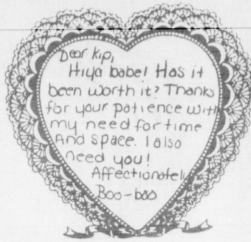 Dear Kip,
Hiya babe! Has it
been worth it? Thanks
for your patience with
my need for time
And space. I also
need you!
Affectionately
Boo-boo